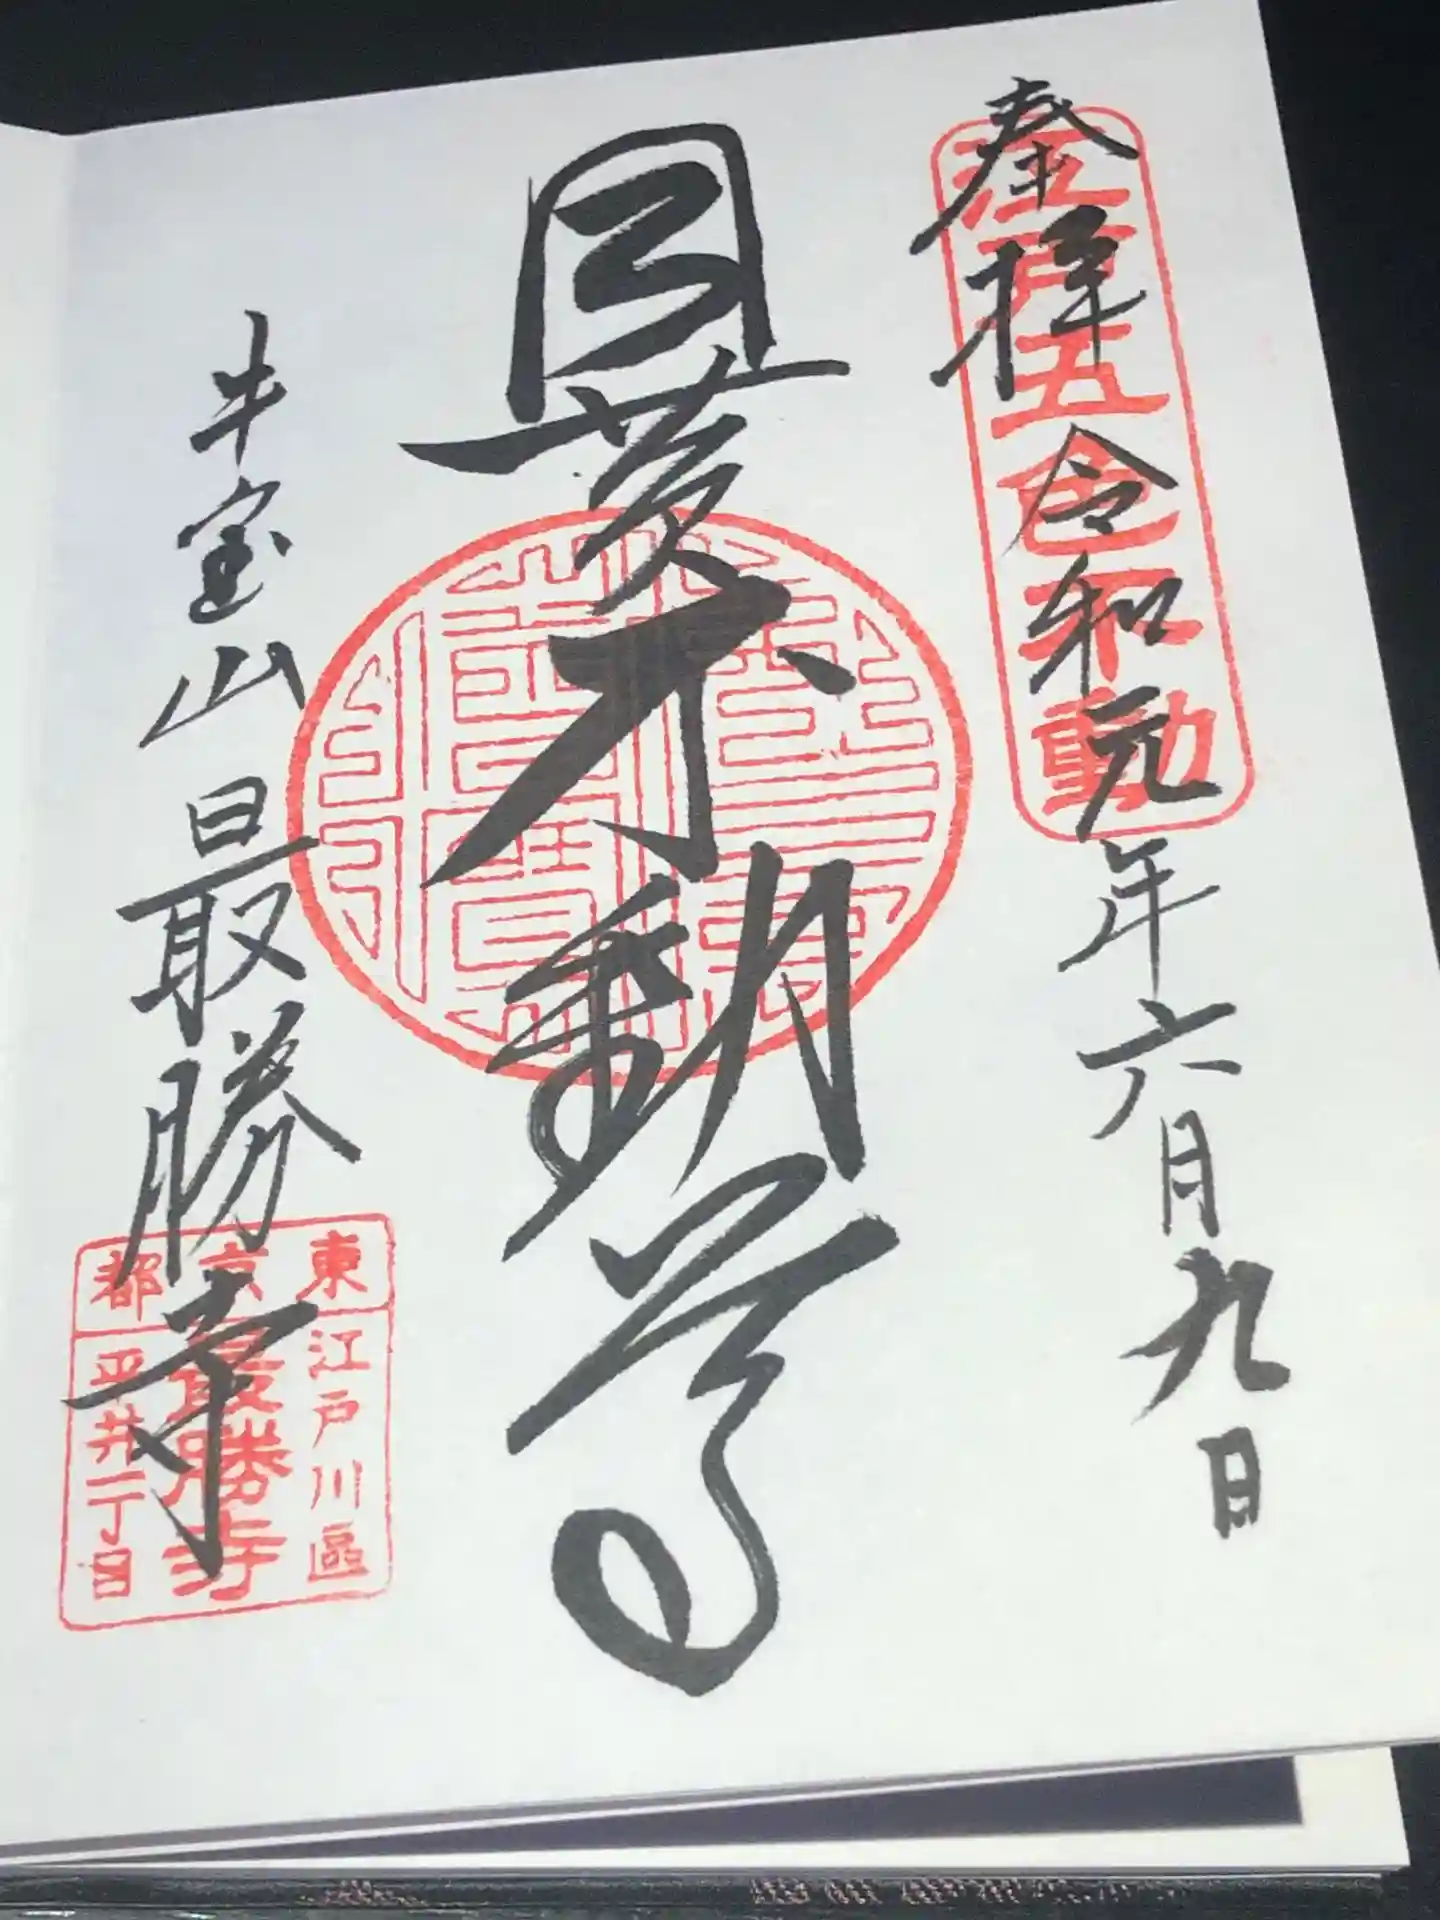 奉拝
令和元年六月九日
江戸五色不動
目黄不動尊
牛宝山
最勝寺
東京都
江戸川區
最勝寺
平井一丁目